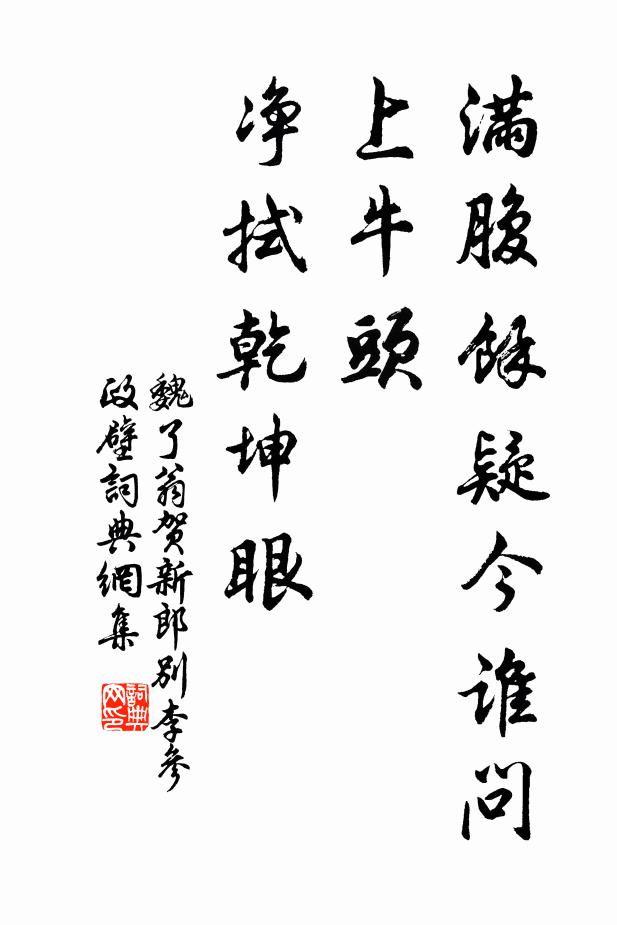 满腹馀疑今谁问
上牛頭
净拭乾坤眼
魏了翁贺新郎别李参
政壁詞典網集
詞典
网印